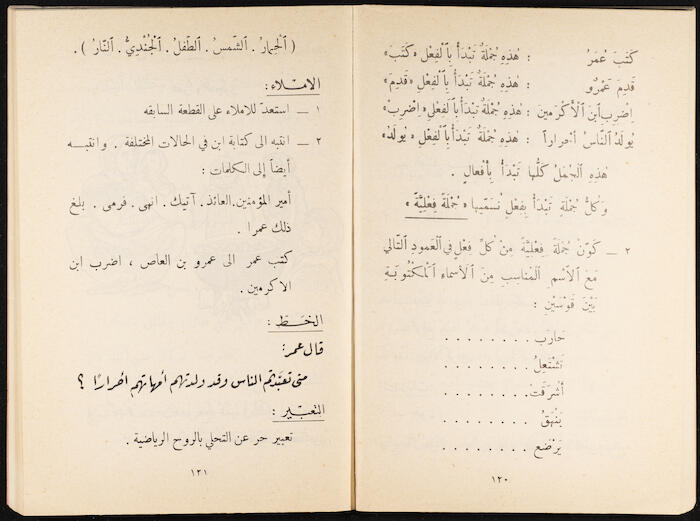 كَتَبَ عُمَرُ : هٰذِهِ جُمْلَةٌ تَبْدَأُ بِالْفِعْلِ «كَتَبَ»
قَدِمَ عَمْرٌو : هٰذِهِ جُمْلَةٌ تَبْدَأُ بِالْفِعْلِ «قَدِمَ»
اِضْرِبِ ابْنَ الْأَكْرَمِينَ : هٰذِهِ جُمْلَةٌ تَبْدَأُ بِالْفِعْلِ «اِضْرِبْ»
يُولَدُ النَّاسُ أَحْراراً : هٰذِهِ جُمْلَةٌ تَبْدَأُ بِالْفِعْلِ «يُولَدُ»
هٰذِهِ الْجُمَلُ كُلُّها تَبْدَأُ بِأَفْعالٍ .
وَكُلُّ جُمْلَةٍ تَبْدَأُ بِفِعْلٍ نُسَمِّيها «جُمْلَةً فِعْلِيَّةً»
٢ — كَوِّنْ جُمْلَةً فِعْلِيَّةً مِنْ كُلِّ فِعْلٍ فِي الْعَمودِ التّالي
مَعَ الْاِسْمِ الْمُناسِبِ مِنَ الْأَسْماءِ الْمَكْتُوبَةِ
بَيْنَ قَوْسَيْنِ :
حَارَبَ . . . . . . . .
تَشْتَعِلُ . . . . . . . .
أَشْرَقَتْ . . . . . . . .
يَنْهَقُ . . . . . . . .
يَرْضَعُ . . . . . . . .
١٢٠
( اَلْحِمارُ . الشَّمْسُ . الطِّفْلُ . الْجُنْدِيُّ . النّارُ ) .
الاملاء :
١ — استعدّ للاملاء على القطعة السابقه
٢ — انتبه الى كتابة ابن في الحالات المختلفة . وانتبه
أيضاً إلى الكلمات :
أمير المؤمنين . العائذ . آتيك . انهى . فرمى . بلغ
ذلك عمرا .
كتب عمر الى عمرو بن العاص ، اضرب ابن
الاكرمين .
الخط :
قال عمر :
متى تعبّدتم الناس وقد ولدتهم أمهاتهم أحرارًا ؟
التعبير :
تعبير حر عن التحلي بالروح الرياضية .
١٢١